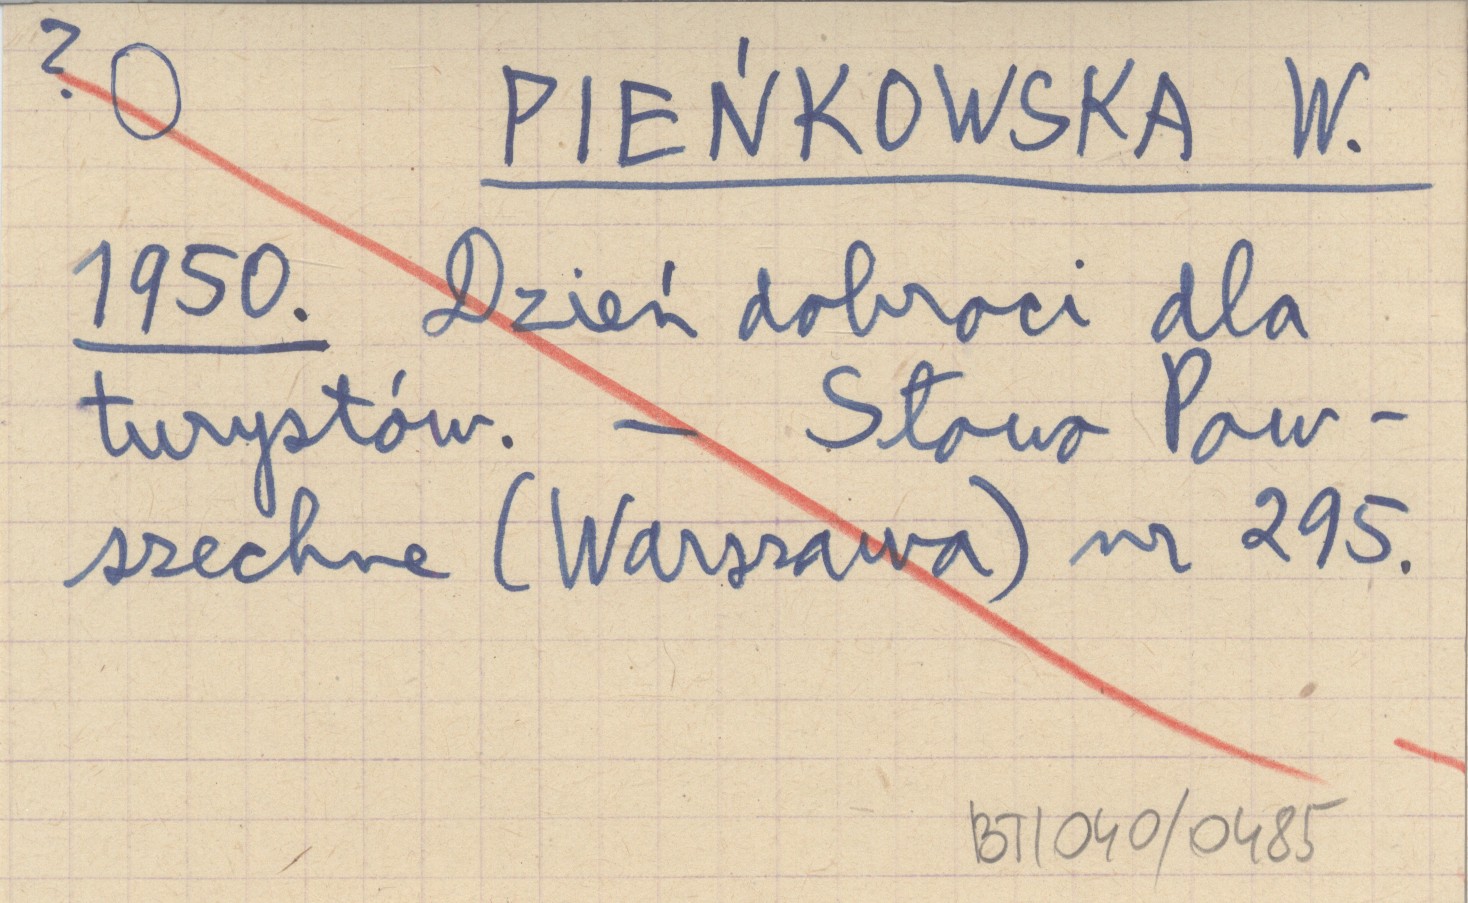 ? O
PIEŃKOWSKA W.
1950. Dzień dobroci dla
turystów. – Słowo Pow-
szechne (Warszawa) nr 295.
BT1040/0485